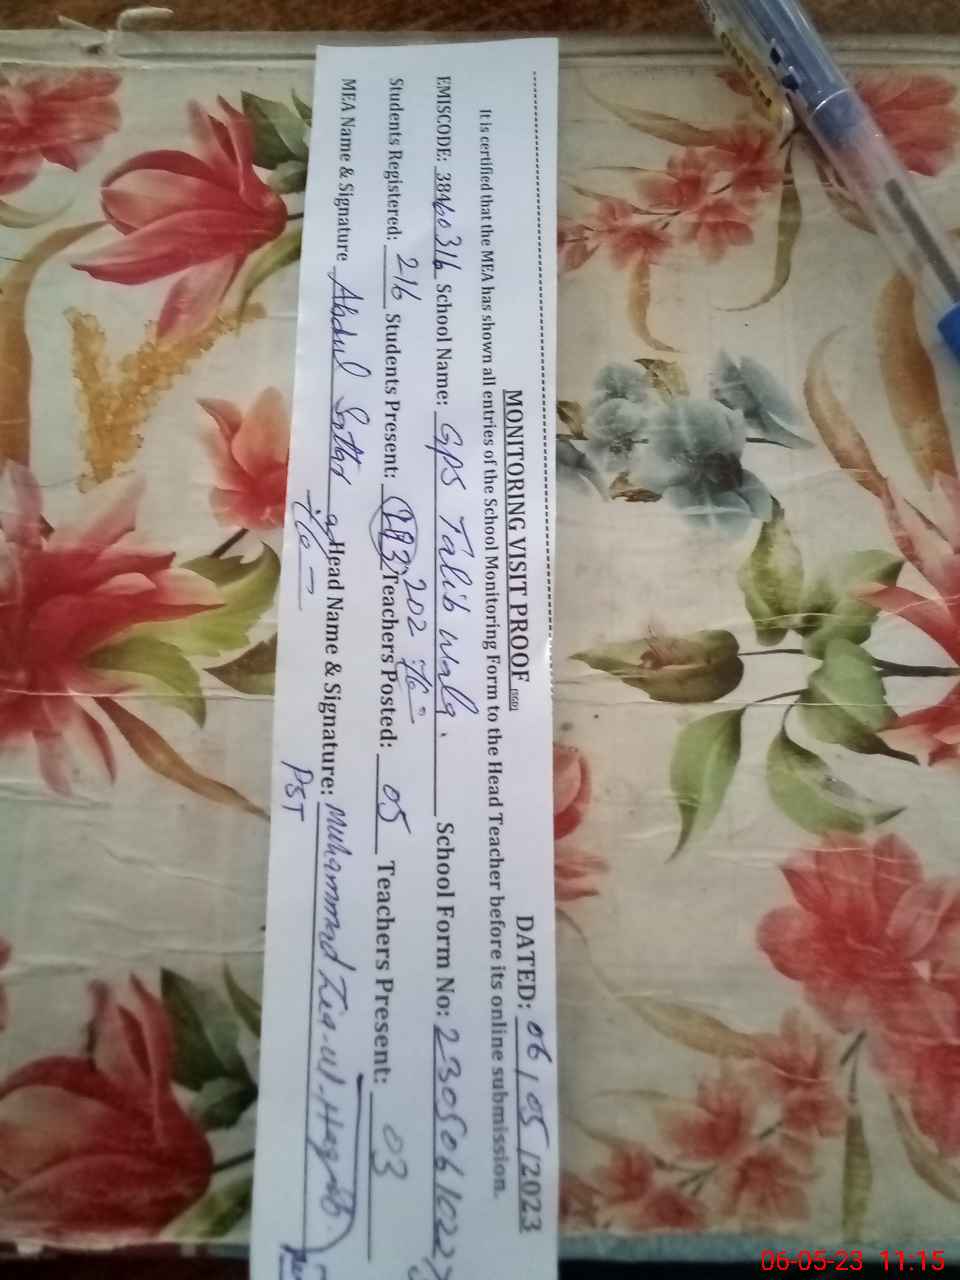 MONITORING VISIT PROOF DATED: 06/05/2023
It is certified that the MEA has shown all entries of the School Monitoring Form to the Head Teacher before its online submission.
EMISCODE: 38460316 School Name: GPS Talib wala. School Form No: 2305061022
Students Registered: 216 Students Present: 202 Teachers Posted: 05 Teachers Present: 03
MEA Name & Signature Abdul Sattar Head Name & Signature: Muhammad Zia-ul-Haq
PST
06-05-23 11:15